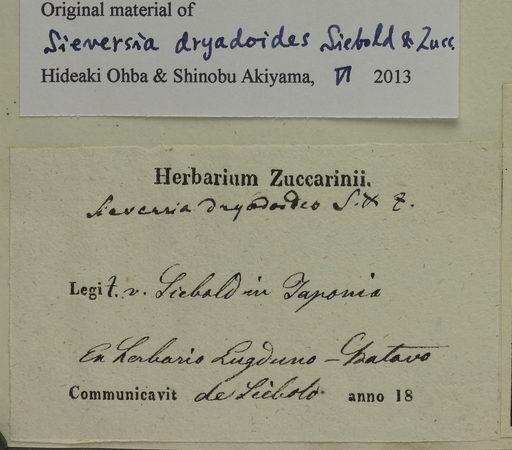 Original material of
Sieversia dryadoides Siebold & Zucc.
Hideaki Ohba & Shinobu Akiyama, VI 2013
Herbarium Zuccarinii.
Sieversia dryadoides S. & Z.
Legit. v. Siebold in Japonia
Ex herbario Lugduno-Batavo
Communicavit de Siebold. anno 18